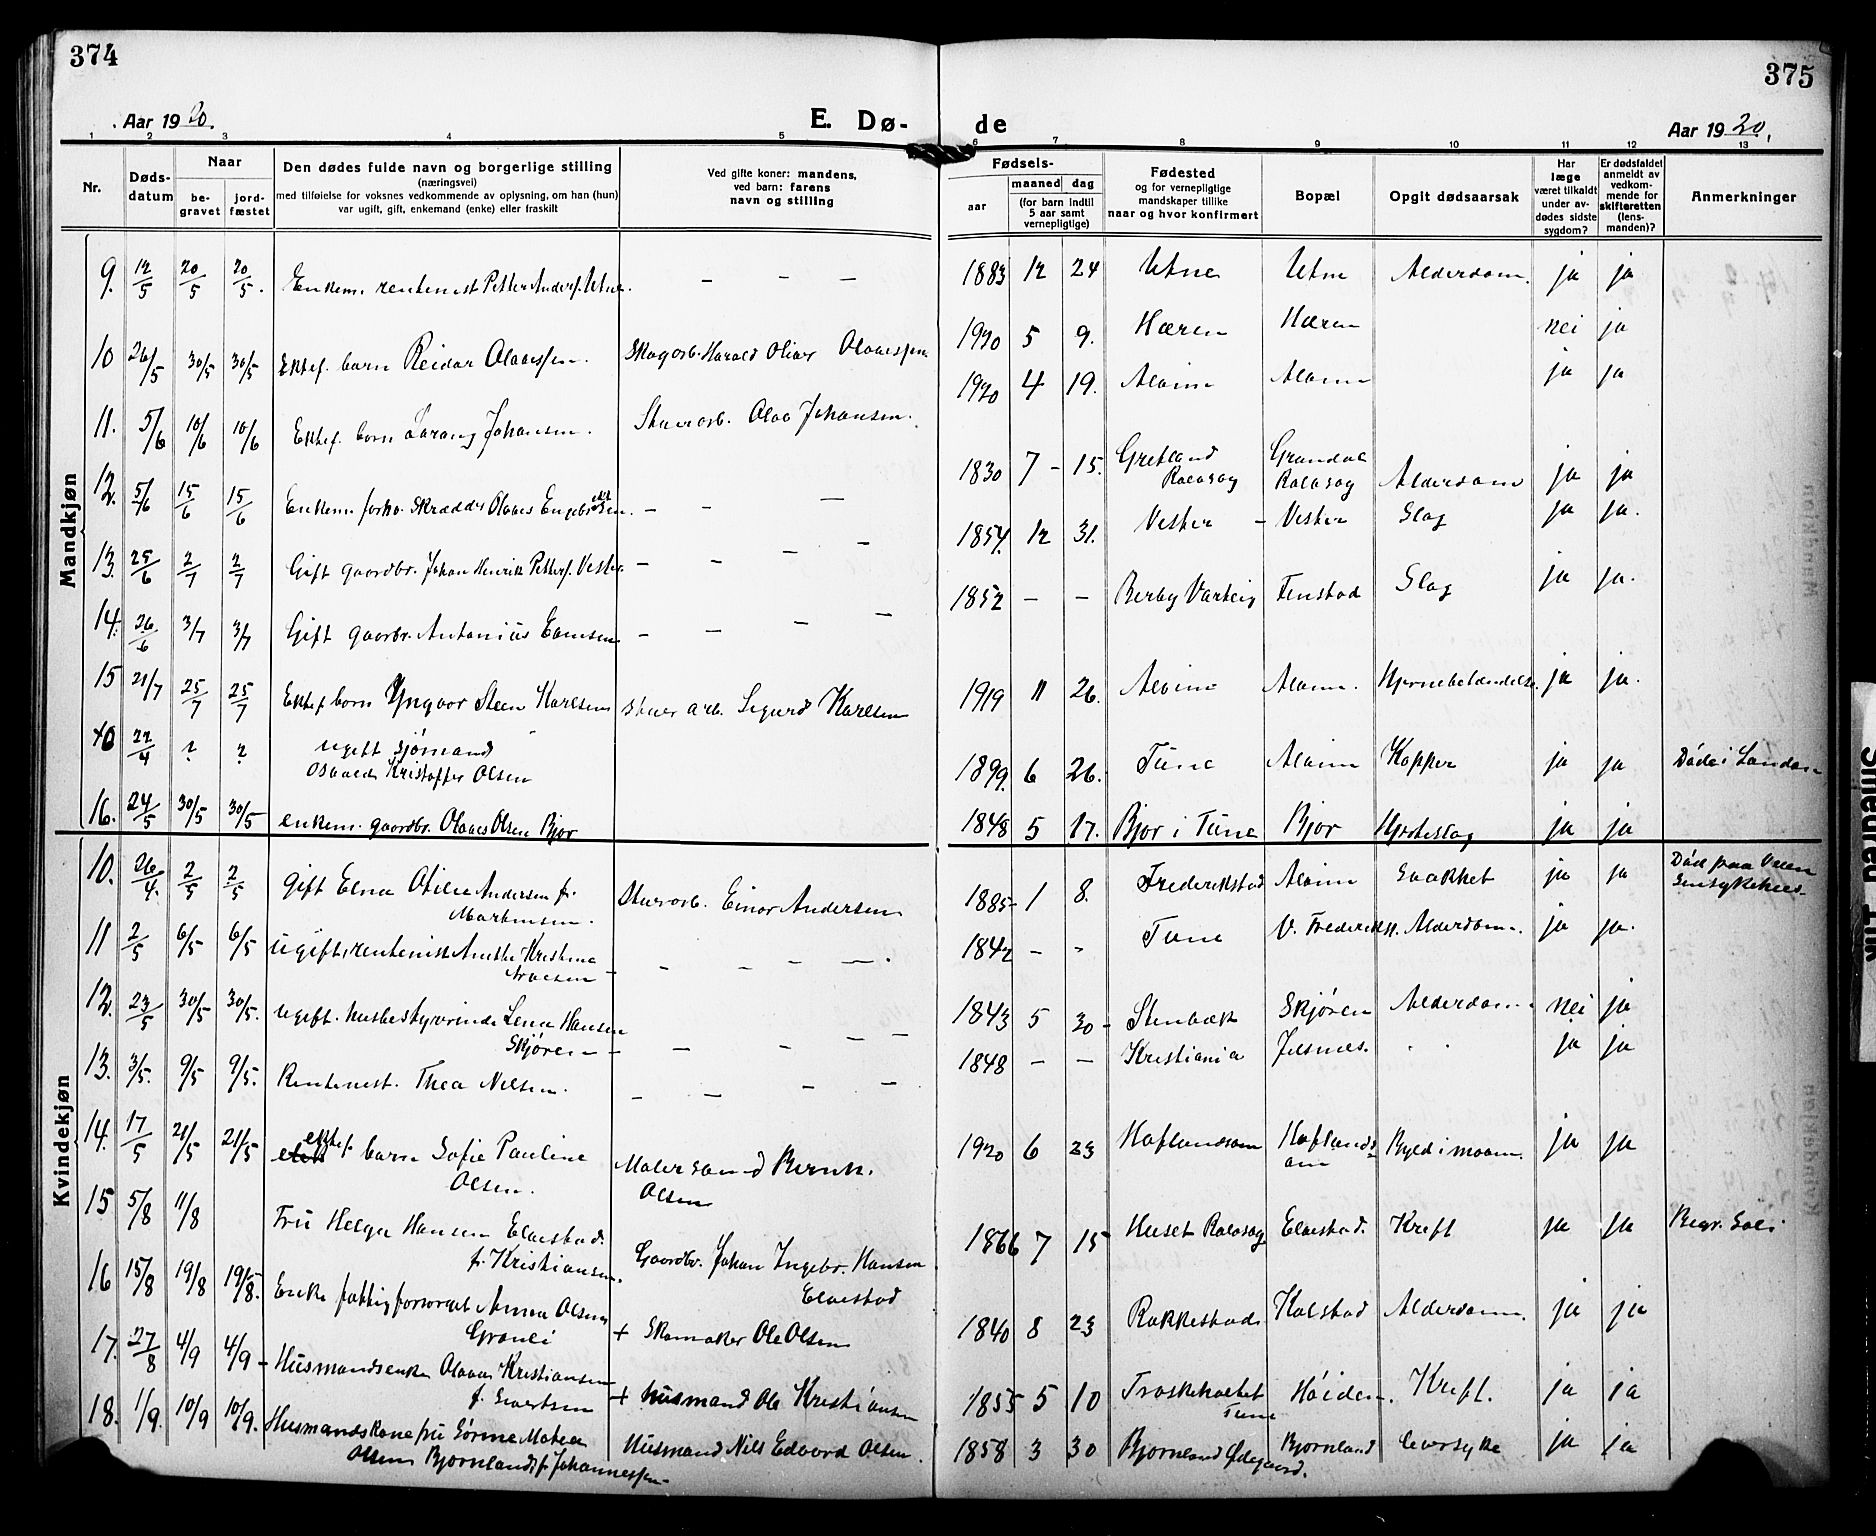 374
375
Aar 1920.
E. Dø-
de
Aar 1920.
1 2 3 4 5 6 7 8 9 10 11 12 13
Nr.
Døds-
datum
Naar
be-
gravet
jord-
fæstet
Den dødes fulde navn og borgerlige stilling
(næringsvei)
med tilføielse for voksnes vedkommende av oplysning, om han (hun)
var ugift, gift, enkemand (enke) eller fraskilt
Ved gifte koner: mandens,
ved barn: farens
navn og stilling
Fødsels-
aar
maaned
dag
(for barn indtil
5 aar samt
vernepligtige)
Fødested
og for vernepligtige
mandskaper tillike
naar og hvor konfirmert
Bopæl
Opgit dødsaarsak
Har
læge
været tilkaldt
under av-
dødes sidste
sygdom?
Er dødsfaldet
anmeldt av
vedkom-
mende for
skifteretten
(lens-
manden)?
Anmerkninger
Mandkjøn
9. 12/5 20/5 20/5. Enkem. rentenist Petter Anders. Utne. – – – 1883 12 24 Utne Utne Alderdom. ja ja
10 26/5 30/5 30/5 Ektef. barn Reidar Olavessen. Skogarb. Harald Oliver Olavessen 1920 5 9. Hæren Hæren nei ja
11. 5/6 10/6 10/6 Ektef. barn Johansen. Stuerarb. Olav Johansen. 1920 4 19. Alvim Alvim ja ja
12. 5/6 15/6 15/6 Enkem. forhv. Skrædder Olaves Engebretsen. – – – 1830 7 – 15. Gretland Rolvsøy Grandal Rolvsøy Alderdom ja ja
13. 25/6 2/7 2/7 Gift gaardbr. Johan Henrik Petters. Vester – – – – 1854. 12 31. Vester – Vester Slag ja ja.
14. 26/6 3/7 3/7 Gift gaarbr. Antonius Evensen – – – – 1852 – – Berby Varteig Tenstad Slag ja ja.
15 21/7 25/7 25/7 Ektef barn Yngvar Steen Karlsen Stuer arb. Sigurd Karlsen 1919 11 26. Alvim Alvim. Hjernebetændelse ja ja.
22/4 ? ? ugift sjømand
Osvald Kristoffer Olsen 1899. 6 26. Tune Alvim Kopper ja ja Døde i London
16. 24/5 30/5 30/5 enkem. gaardbr. Olaves Olsen Bjor 1848 5 17. Bjor i Tune Bjor Hjerteslag ja ja
Kvindekjøn
10. 26/4. 2/5 2/5 Gift Elna Otilie Andersen f.
Martinsen. Stuerarb. Einar Andersen 1885 – 1 8. Frederikstad Alvim ja ja Død paa Veum
Sinsykehus.
11 2/5 6/5 6/5 Ugift, rentenist Anethe Kristine
– – – – . 1842 – – Tune V. Frederikst. Alderdom. ja ja.
12. 23/5 30/5 30/5. ugift. husbestyrerinde Lena Hansen
Skjøren – – – – – 1843 5 30 – Stenbæk Skjøren Alderdom. nei ja
13. 3/5. 9/5 9/5. Rentenist. Thea Nilsen. – – – – 1848 – – Kristiania Jelsnes. . . ja ja
14. 17/5 21/5 21/5 ektef. barn Sofie Pauline
Olsen. Malersvend Bernh.
Olsen 1920 6 23 Haflundsøen Haflunds-
øen Byld i maven. ja ja
15 5/8 11/8 Fru Helga Hansen Elvestad.
f. Kristiansen. Gaardbr. Johan Ingebr. Hansen
Elvestad 1866 7 15 Huset Rolvsøy Elvestad. Kreft ja ja Begr. Soli
16 15/8 19/8 19/8. Enke fattigforsørget Anna Olsen
Grønli + Skomaker Ole Olsen 1840 8 23 Rakkestad Kalstad Alderdom. ja ja
17. 27/8 4/9 4/9 – Husmandsenke Olava Kristiansen
f. Sivertsen + husmand Ole Kristiansen 1855 5 10 Torskeholtet
Tune Høiden. Kreft. ja ja
18. 1/9. 10/9 10/9. Husmandskone fru Sørine Matea
Olsen Bjørnland f. Johannessen – Husmand Nils Edvard Olsen. 1858 3 30 Bjørnland Ødegaard. Bjørnland leversyke ja ja